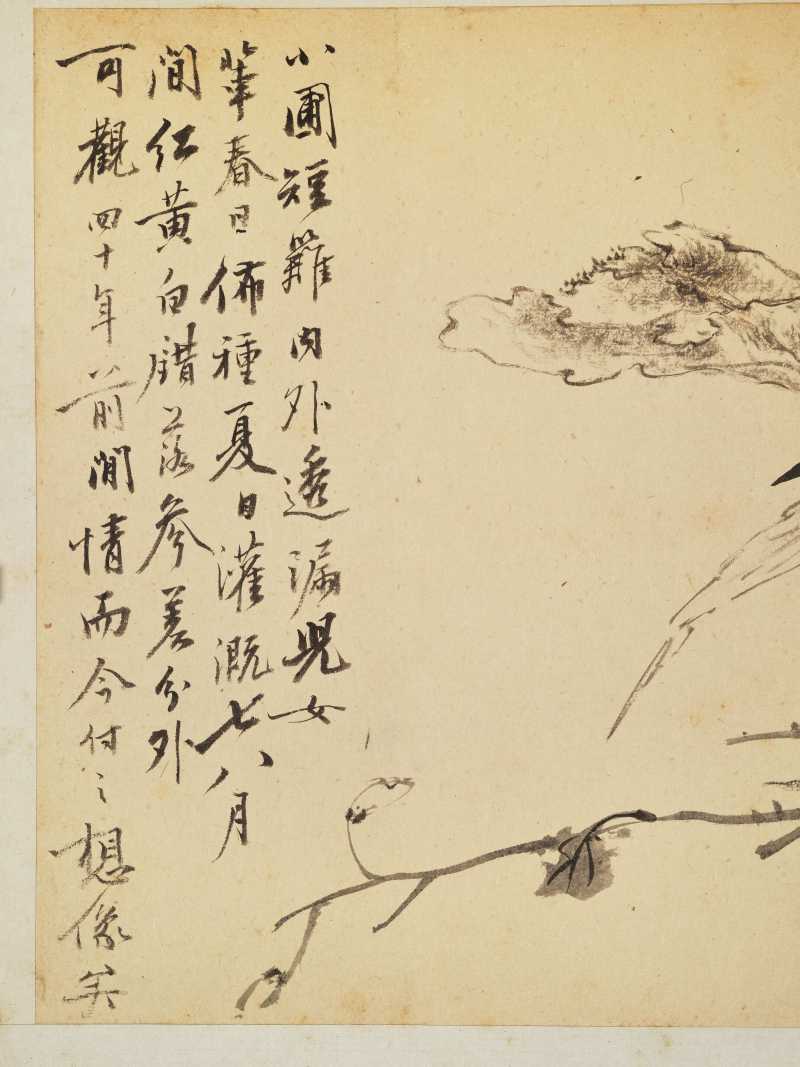 小圃短籬內外透漏兒女
輩春日佈種夏日灌溉七八月
間紅黃白錯落參差分外
可觀四十年前閒情而今付之想像矣